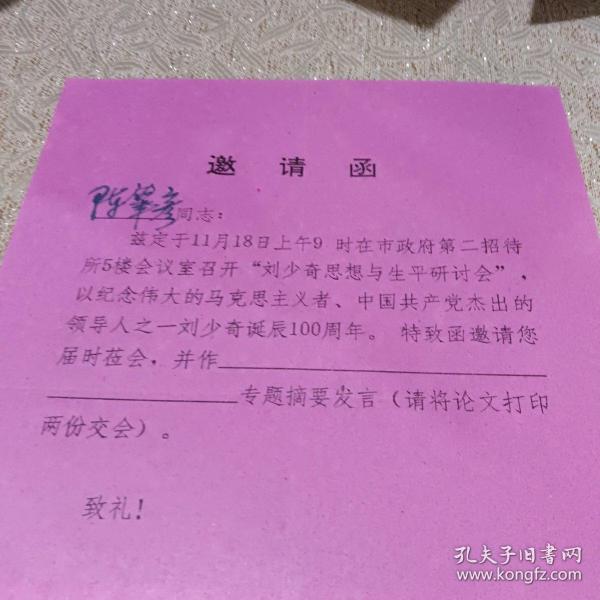 邀请函
陈荣彦同志：
兹定于11月18日上午9 时在市政府第二招待
所5楼会议室召开“刘少奇思想与生平研讨会”，
以纪念伟大的马克思主义者、中国共产党杰出的
领导人之一刘少奇诞辰100周年。 特致函邀请您
届时莅会，并作
专题摘要发言（请将论文打印
两份交会）。
致礼！
孔夫子旧书网
www.kongfz.com